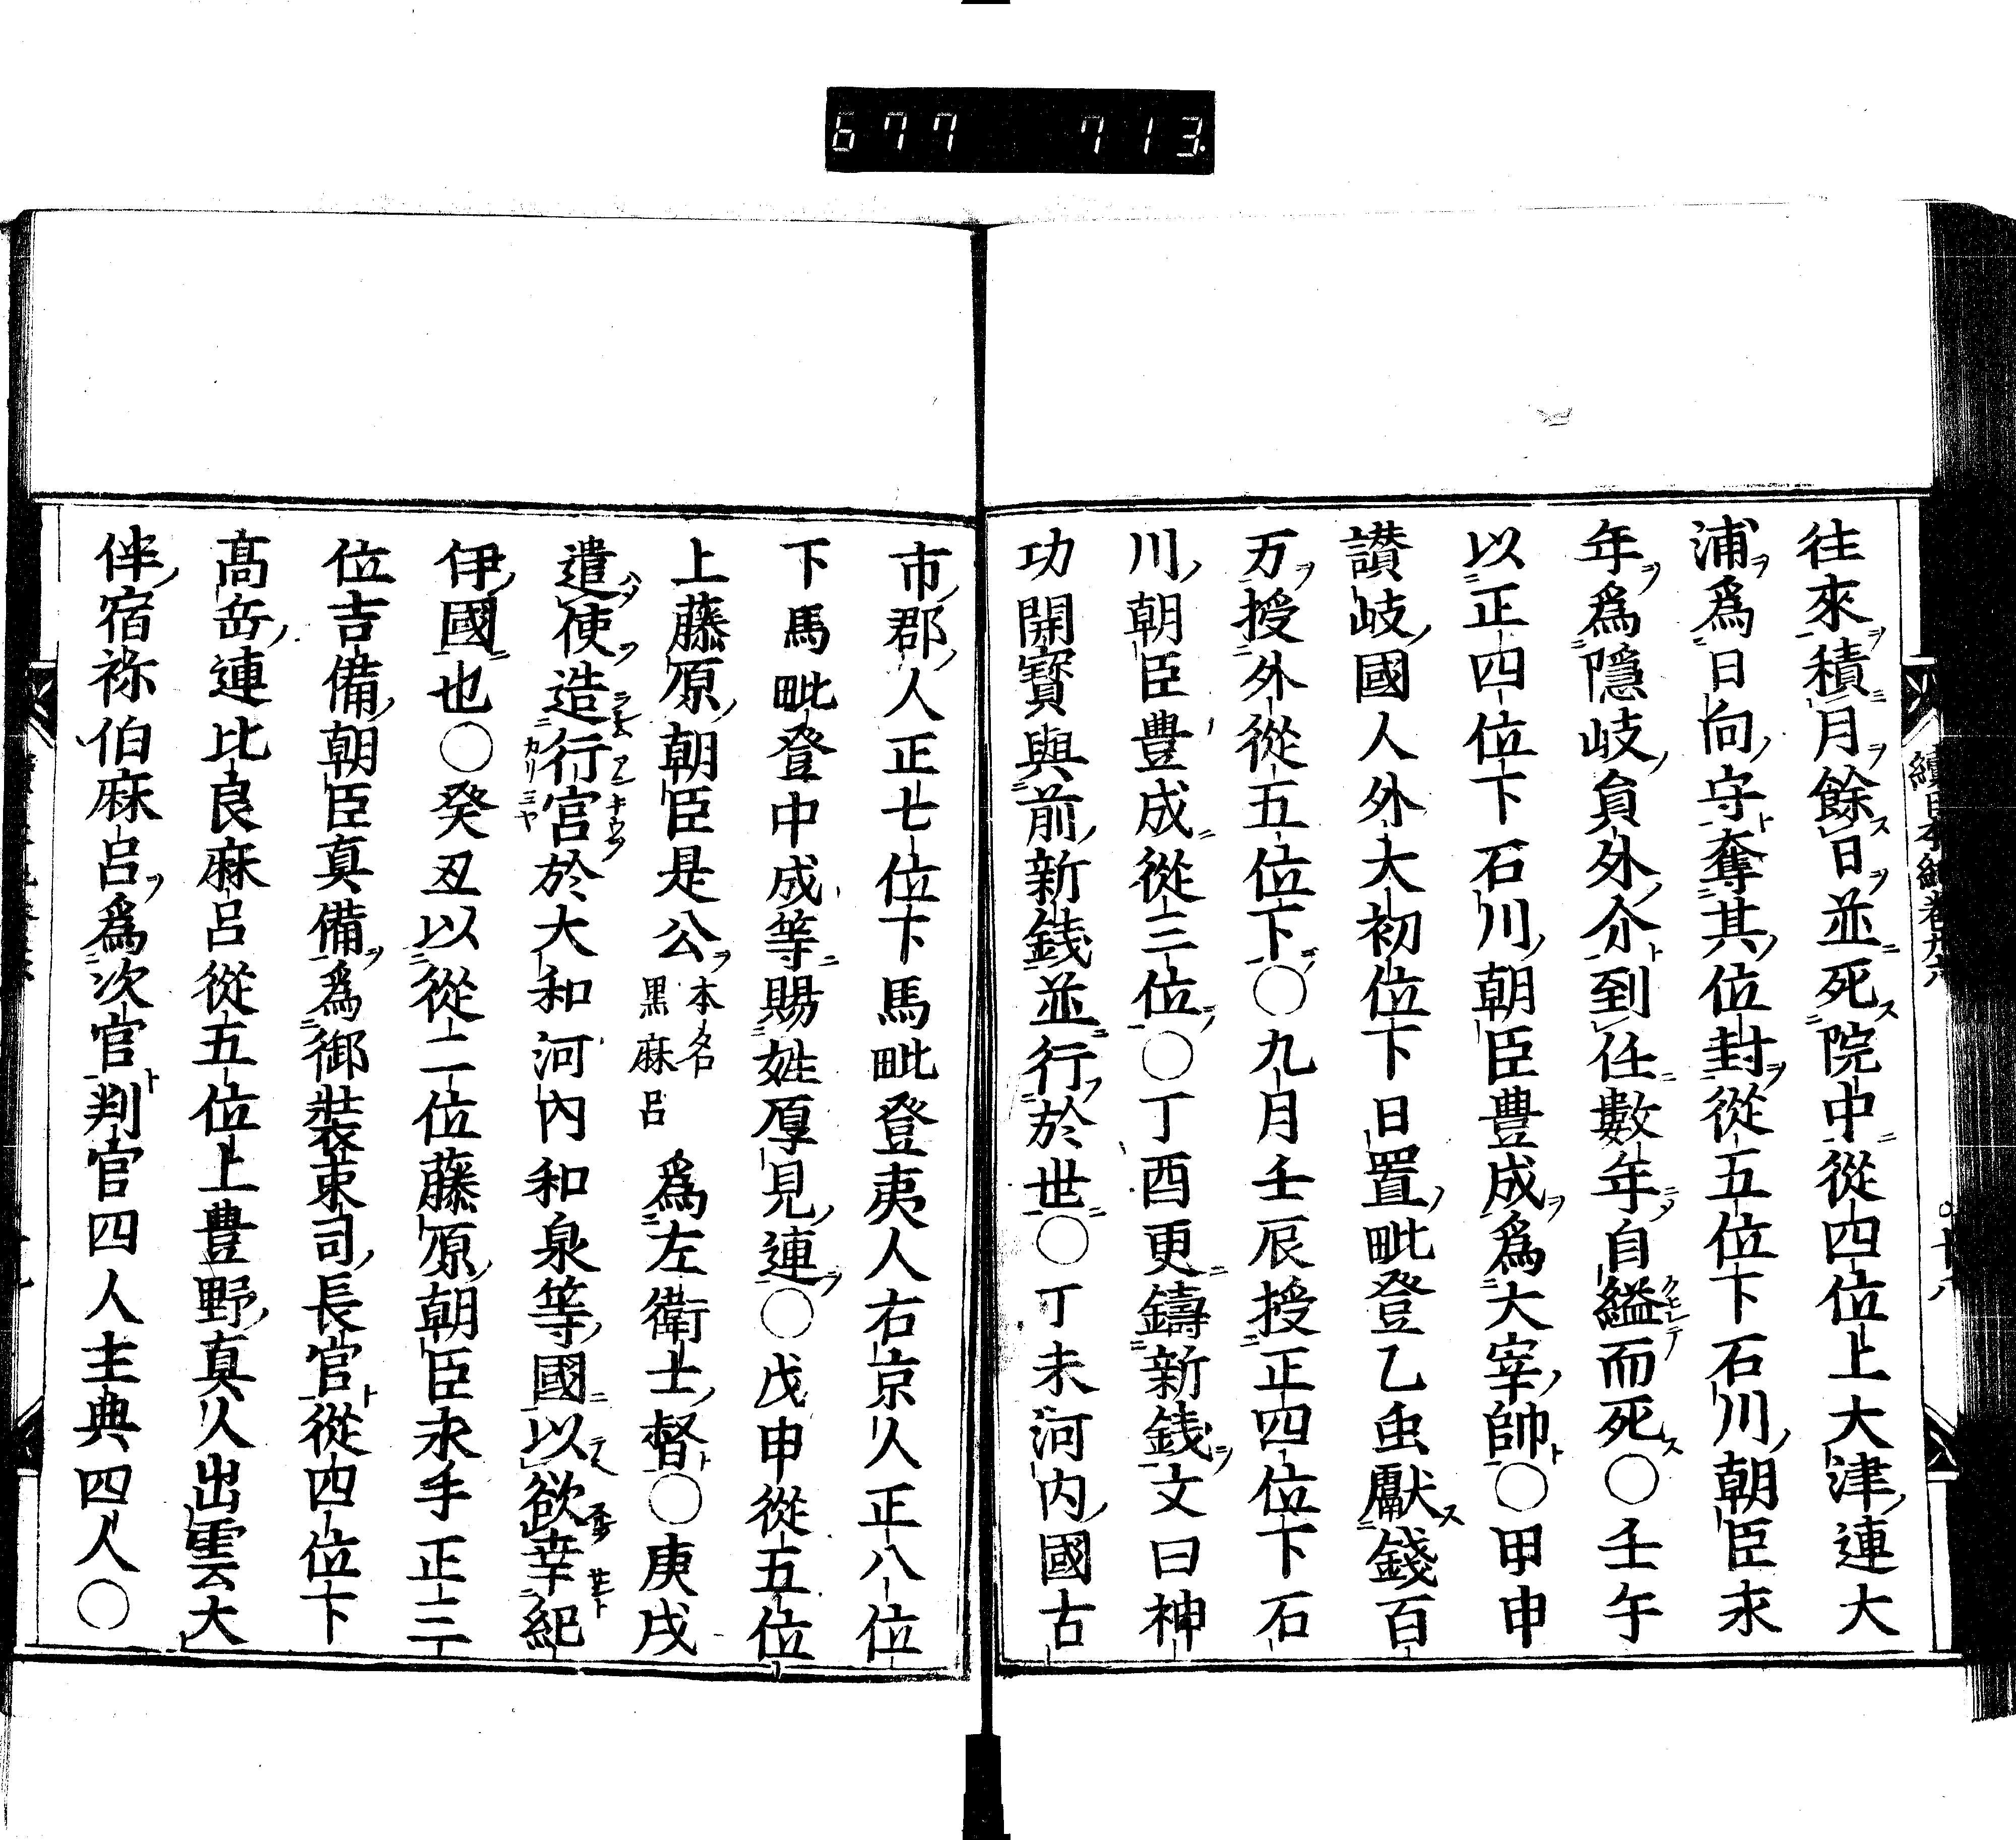 677 713
往來積月餘日並死院中從四位上大津連大
浦爲日向守奪其位封從五位下石川朝臣永
年爲隱岐員外介到任數年自縊而死○壬午
以正四位下石川朝臣豊成爲大宰帥○甲申
讃岐國人外大初位下日置毗登乙虫獻錢百
万授外從五位下○九月壬辰授正四位下石
川朝臣豊成從三位○丁酉更鑄新錢文曰神
功開寳與前新錢並行於世○丁未河内國古
市郡人正七位下馬毗登夷人右京人正八位
下馬毗登中成等賜姓厚見連○戊申從五位
上藤原朝臣是公本名黒麻呂爲左衛士督○庚戌
遣使造行宮於大和河内和泉等國以欲幸紀
伊國也○癸丑以從二位藤原朝臣永手正三
位吉備朝臣真備爲御裝束司長官從四位下
髙岳連比良麻呂從五位上豊野真人出雲大
伴宿祢伯麻呂爲次官判官四人主典四人○